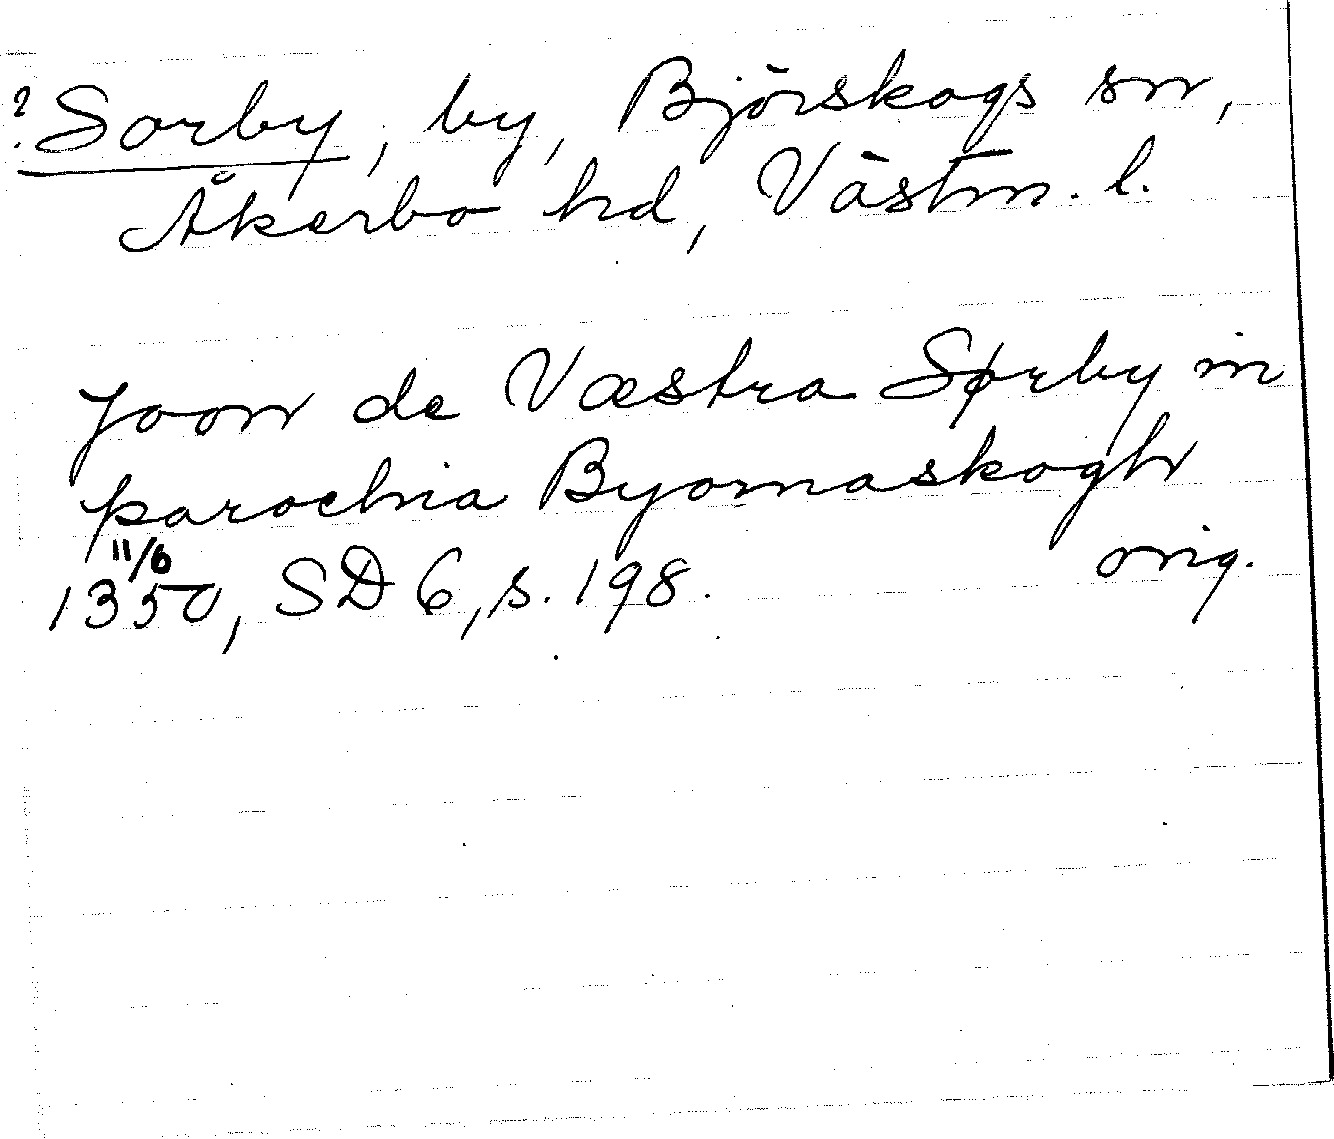 ? Sorby, by, Björskogs sn,
Åkerbo hd, Västm. l.
Joon de Væstra Sørby in
parochia Byornaskogh
11/6
1350, SD 6, s. 198. orig.